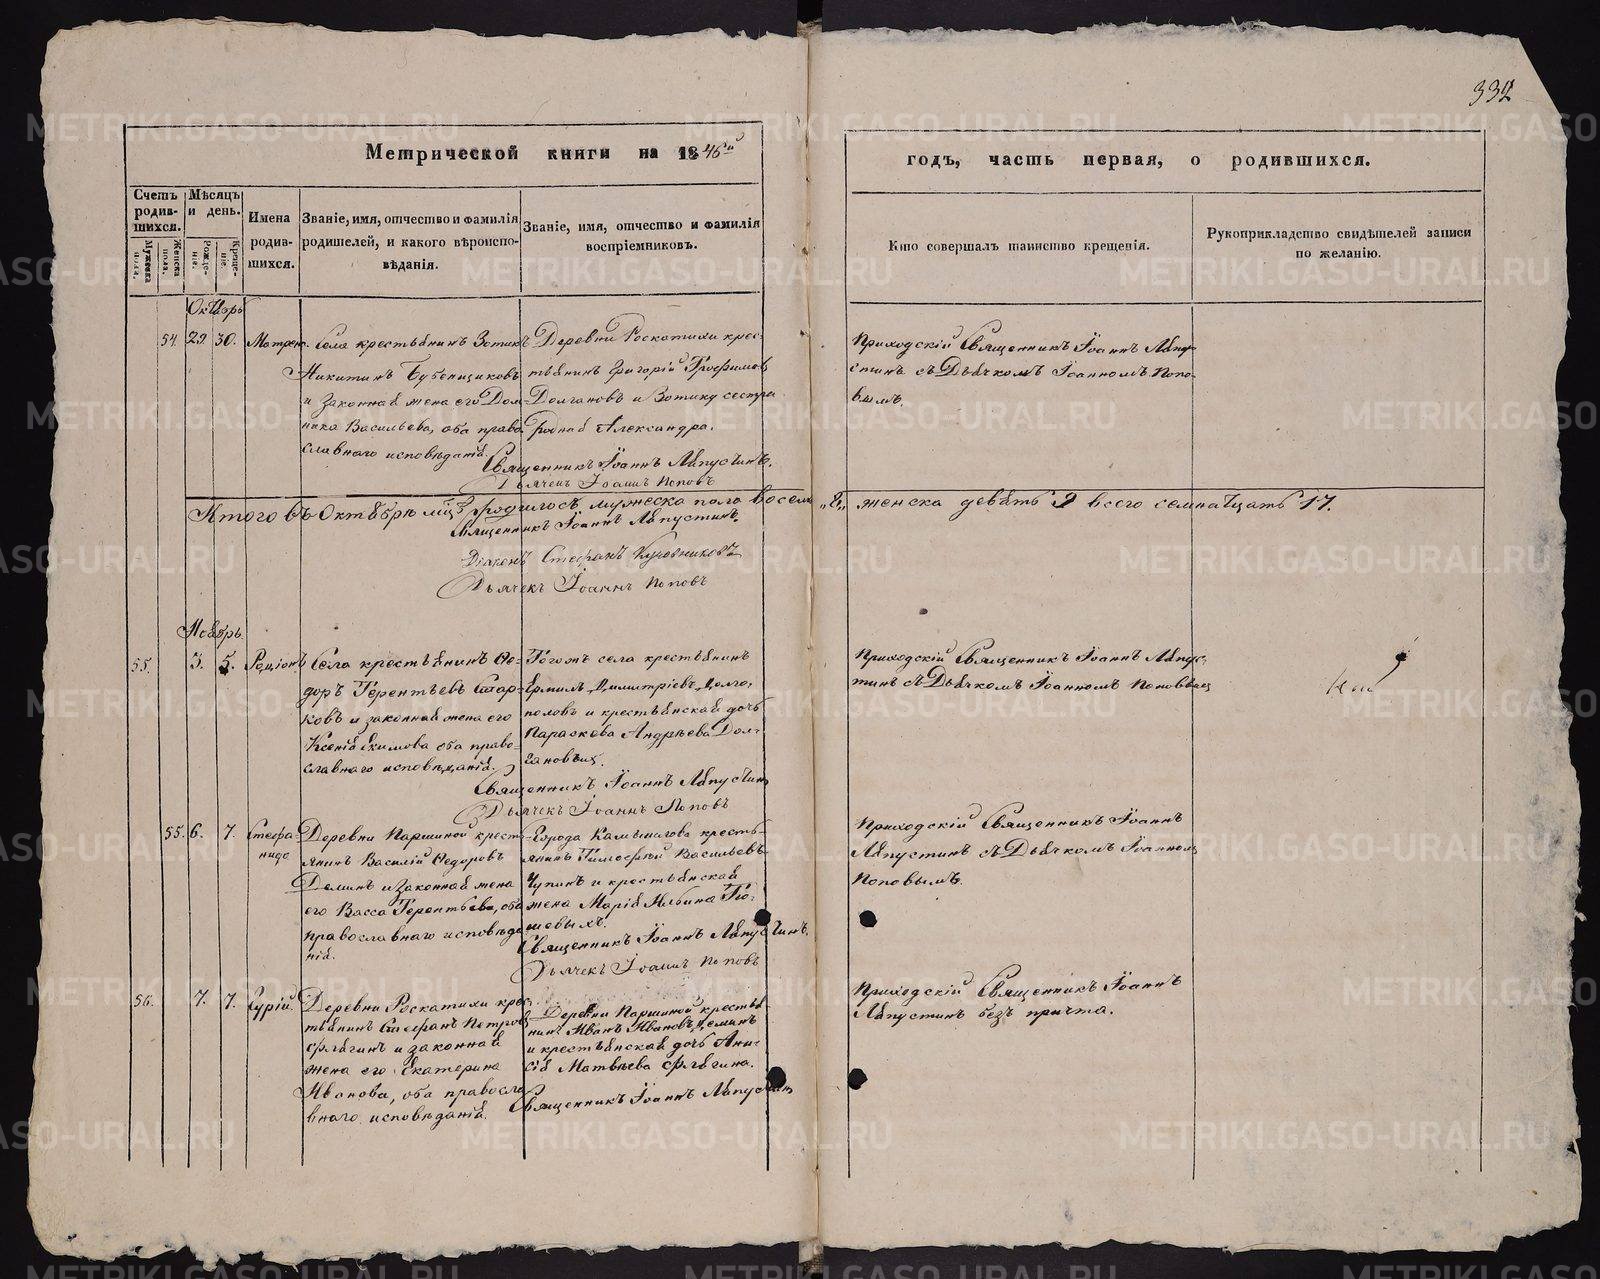 332
Метрической книги на 1846й
годъ, часть первая, о родившихся.
Счетъ родив-шихся.
Мужеска пола.
Женска пола.
Мѣсяцъ и день.
Рожде-ніе.
Креще-ніе.
Имена родив-шихся.
Званіе, имя, отчество и фамилія родителей, и какого вѣроиспо-вѣданія.
Званіе, имя, отчество и фамилія воспріемниковъ.
Кто совершалъ таинство крещенія.
Рукоприкладство свидѣтелей записи по желанію.
Октябрь
54. 29. 30. Матрена.
Села крестьянинъ Зотикъ
Никитинъ Бубенщиковъ
и законная жена его Дом-
ника Васильева, оба право-
славнаго исповѣданія.
Деревни Роскатихи крес-
тьянинъ Григорій Трофимовъ
Долгановъ и Зотику сестра
родная Александра.
Священникъ Іоаннъ Ляпустинъ.
Дьячекъ Іоаннъ Поповъ
Приходскій Священникъ Іоаннъ Ляпу-
стинъ съ Дьячкомъ Іоанномъ Попо-
вымъ.
Итого въ Октябрѣ мцѣ родилось мужеска пола восемь „8„ женска девять 9 всего семнатцать 17.
Священникъ Іоаннъ Ляпустинъ.
Діаконъ Стефанъ
Дьячекъ Іоаннъ Поповъ
Ноябрь.
55. 3. 5. Родіонъ
Села крестьянинъ Фе-
доръ Терентьевъ Стар-
ковъ и законная жена его
Ксенія Екимова оба право-
славнаго исповѣданія.
Тогожъ села крестьянинъ
Ермилъ Димитріевъ Долго-
половъ и крестьянская дочь
Параскева Андрѣева Дол-
гановыхъ.
Священникъ Іоаннъ Ляпустинъ
Дьячекъ Іоаннъ Поповъ
Приходскій Священникъ Іоаннъ Ляпус-
тинъ съ Дьячкомъ Іоанномъ Поповымъ
55. 6. 7. Стефа-
нида
Деревни Паршиной кресть-
янинъ Василій Федоровъ
Деминъ и законная жена
его Васса Терентьева, оба
православнаго исповѣда-
нія.
Города Камышлова кресть-
янинъ Тимофѣй Васильевъ
Чупинъ и крестьянская
жена Марія Ильина
Священникъ Іоаннъ Ляпустинъ.
Дьячекъ Іоаннъ Поповъ
Приходскій Священникъ Іоаннъ
Ляпустинъ съ Дьячкомъ Іоанномъ
Поповымъ.
56. 7. 7. Гурій.
Деревни Роскатихи крес-
тьянинъ Стефанъ Петровъ
Флягинъ и законная
жена его Екатерина
Иванова, оба правосла-
внаго исповѣданія.
Деревни Паршиной крестья-
нинъ Иванъ Ивановъ Деминъ
и крестьянская дочь Ани-
сія Матвѣева Флягина.
Священникъ Іоаннъ Ляпустинъ
Приходскій Священникъ Іоаннъ
Ляпустинъ безъ причта.
METRIKI.GASO-URAL.RU